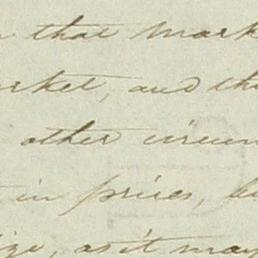 that mark
rket, and th
other circum
in prices, b
ize, as it may